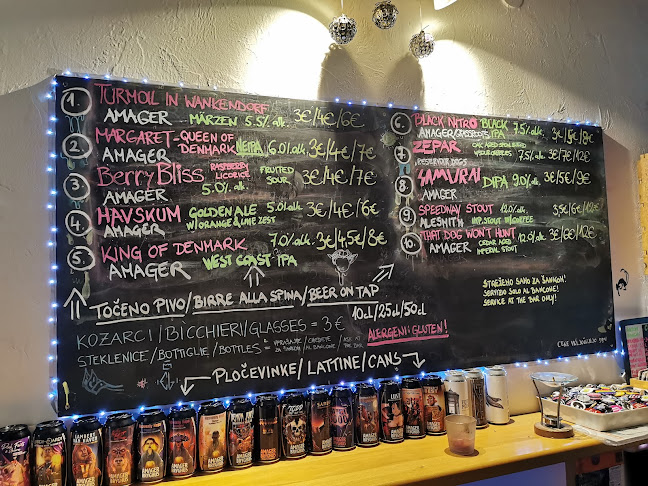 1. TURMOIL IN WANKENDORF
AMAGER MÄRZEN 5.5% alk. 3€/4€/6€
2. MARGARET-QUEEN OF
DENMARK NEIPA 6.0% alk. 3€/4€/7€
AMAGER
3. Berry Bliss RASPBERRY LICORICE FRUITED SOUR 3€/4€/7€
AMAGER 5.0% alk.
4. HAVSKUM GOLDEN ALE 5.0% alk. 3€/4€/6€
AMAGER W/ORANGE & LIME ZEST
5. KING OF DENMARK 7.0% alk. 3€/4,5€/8€
AMAGER WEST COAST IPA
6. BLACK NITRO BLACK IPA 7.5% alk.
AMAGER/GRASSROOTS
7. ZEPAR OAK AGED
7.5% alk. 3€/7€/12€
RESERVOIR DOGS
8. SAMURAI DIPA 9.0% alk. 3€/5€/9€
AMAGER
9. SPEEDWAY STOUT 12.0% alk.
ALESMITH IMP. STOUT W/COFFEE
10. THAT DOG WON'T HUNT 12.0% alk.
AMAGER CEDAR AGED IMPERIAL STOUT
TOČENO PIVO/BIRRE ALLA SPINA/BEER ON TAP
10cl/25cl/50cl
KOZARCI/BICCHIERI/GLASSES = 3€
ALERGENI: GLUTEN!
STEKLENICE/BOTTIGLIE/BOTTLES = VPRAŠAJTE ZA ŠANKOM / CHIEDETE AL BANCONE / ASK AT THE BAR
PLOČEVINKE/LATTINE/CANS
STREŽENO SAMO ZA ŠANKOM!
SERVITO SOLO AL BANCONE!
SERVICE AT THE BAR ONLY!
AMAGER BRYGHUS